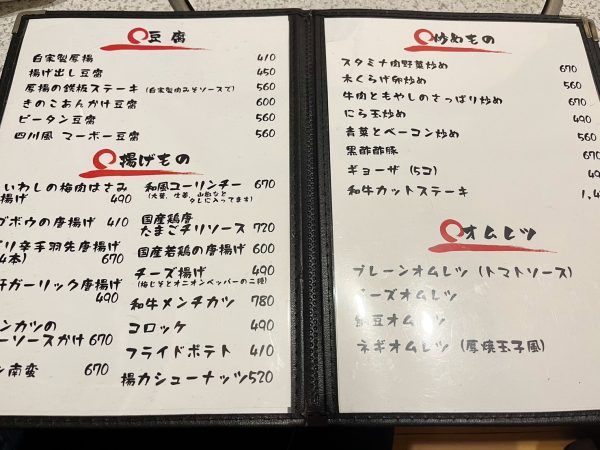 豆腐
自家製厚揚 410
揚げ出し豆腐 450
厚揚の鉄板ステーキ(自家製肉みそソースで) 560
きのこあんかけ豆腐 600
ピータン豆腐 560
四川風 マーボー豆腐 560
揚げもの
いわしの梅肉はさみ
揚げ 490
ゴボウの唐揚げ 410
リ辛手羽先唐揚げ
4本) 670
ガーリック唐揚げ
490
ンカツの
ーソースかけ 670
ン南蛮 670
和風ユーリンチー 670
タレに入ってます)
国産鶏唐
たまごチリソース 720
国産若鶏の唐揚げ 600
チーズ揚げ 490
(梅じそとオニオンペッパーの二種)
和牛メンチカツ 780
コロッケ 490
フライドポテト 410
揚カシューナッツ 520
炒めもの
スタミナ肉野菜炒め 670
木くらげ卵炒め 560
牛肉ともやしのさっぱり炒め 670
にら玉炒め 490
青菜とベーコン炒め 560
黒酢酢豚 670
ギョーザ (5コ) 49
和牛カットステーキ 1,4
オムレツ
プレーンオムレツ (トマトソース)
チーズオムレツ
納豆オムレツ
ネギオムレツ (厚焼玉子風)